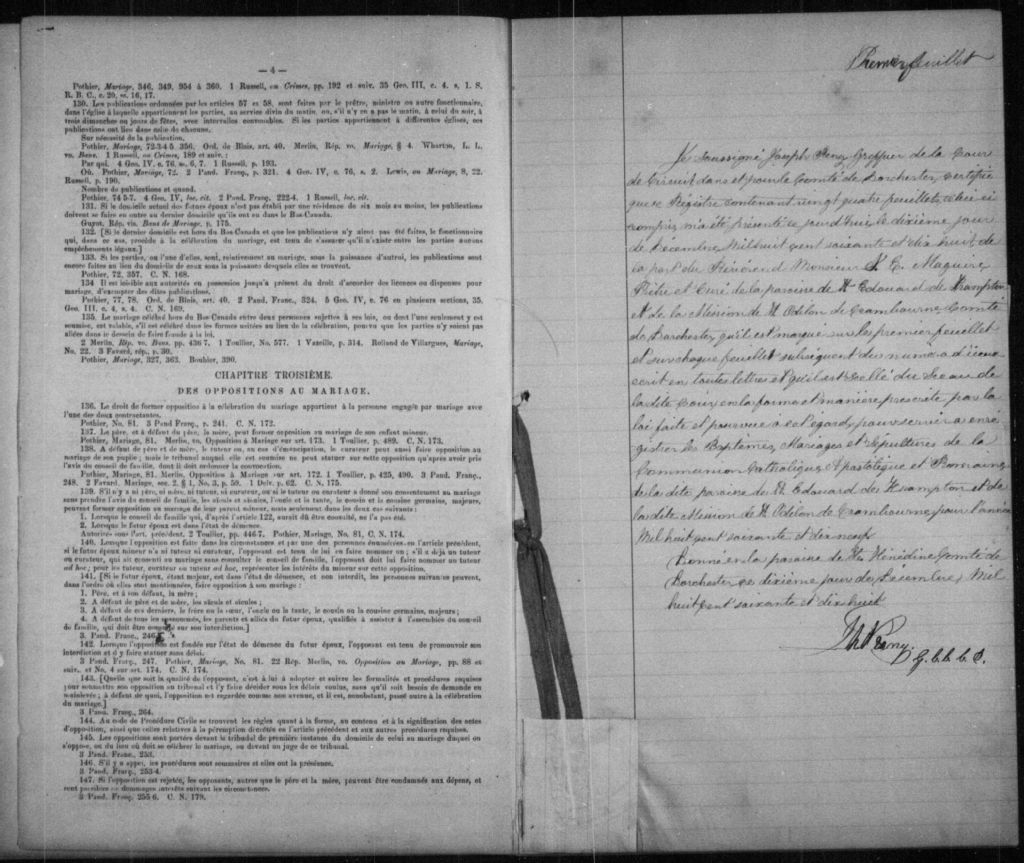 — 4 —
Pothier, Mariage, 346, 349, 954 à 360. 1 Russell, on Crimes, pp. 192 et suiv. 35 Geo. III, c. 4. s. 1. S.
R. B. C., c. 20, ss. 16, 17.
130. Les publications ordonnées par les articles 57 et 58, sont faites par le prêtre, ministre ou autre fonctionnaire,
dans l'église à laquelle appartiennent les parties, au service divin du matin, ou, s'il n'y en a pas le matin, à celui du soir, à
trois dimanches ou jours de fêtes, avec intervalles convenables. Si les parties appartiennent à différentes églises, ces
publications ont lieu dans celle de chacune.
Sur nécessité de la publication.
Pothier, Mariage, 72-3-4 5. 356. Ord. de Blois, art. 40. Merlin, Rép. vo. Mariage, § 4. Wharton, L. L.
vo. Bans. 1 Russell, on Crimes, 189 et suiv. :
Par qui. 4 Geo. IV. c. 76, ss. 6, 7. 1 Russell, p. 193.
Où. Pothier, Mariage, 72. 2 Pand. Franç., p. 321. 4 Geo. IV, c. 76, s. 2. Lewis, on Mariage, 8, 22.
Russell, p. 190.
Nombre de publications et quand.
Pothier, 74 5-7. 4 Geo. IV, loc. cit. 2 Pand. Franç., 222-4. 1 Russell, loc. cit.
131. Si le domicile actuel des futurs époux n'est pas établi par une résidence de six mois au moins, les publications
doivent se faire en outre au dernier domicile qu'ils ont eu dans le Bas-Canada.
Guyot, Rép. vis. Bans de Mariage, p. 175.
132. [Si le dernier domicile est hors du Bas-Canada et que les publications n'y aient pas été faites, le fonctionnaire
qui, dans ce cas, procède à la célébration du mariage, est tenu de s'assurer qu'il n'existe entre les parties aucuns
empêchements légaux.]
133. Si les parties, ou l'une d'elles, sont, relativement au mariage, sous la puissance d'autrui, les publications sont
encore faites au lieu du domicile de ceux sous la puissance desquels elles se trouvent.
Pothier, 72, 357. C. N. 168.
134 Il est loisible aux autorités en possession jusqu'à présent du droit d'accorder des licences ou dispenses pour
mariage, d'exempter des dites publications.
Pothier, 77, 78. Ord. de Blois, art. 40. 2 Pand. Franc., 324. 5 Geo. IV, c. 76 en plusieurs sections, 35.
Geo. III. c. 4, s. 4. C. N. 169.
135. Le mariage célébré hors du Bas-Canada entre deux personnes sujettes à ses lois, ou dont l'une seulement y est
soumise, est valable, s'il est célébré dans les formes usitées au lieu de la célébration, pourvu que les parties n'y soient pas
allées dans le dessein de faire fraude à la loi.
2 Merlin, Rép. vo. Bans, pp. 436 7. 1 Toullier, No. 577. 1 Vazeille, p. 314. Rolland de Villargues, Mariage,
No. 22. 3 Favard, rép., p. 30.
Pothier, Mariage, 327, 363. Bouhier, 390.
CHAPITRE TROISIÈME.
DES OPPOSITIONS AU MARIAGE.
136. Le droit de former opposition à la célébration du mariage appartient à la personne engagée par mariage avec
l'une des deux contractantes.
Pothier, No. 81. 3 Pand Franç., p. 241. C. N. 172.
137. Le père, et à défaut du père, la mère, peut former opposition au mariage de son enfant mineur.
Pothier, Mariage, 81. Merlin, vo. Opposition à Mariage sur art. 173. 1 Toullier, p. 489. C. N. 173.
138. A défaut de père et de mère, le tuteur ou, en cas d'émancipation, le curateur peut aussi faire opposition au
mariage de son pupile ; mais le tribunal auquel elle est soumise ne peut statuer sur cette opposition qu'après avoir pris
l'avis du conseil de famille, dont il doit ordonner la convocation.
Pothier, Mariage, 81. Merlin, Opposition à Mariage sur art. 172. 1 Toullier, p. 425, 490. 3 Pand. Franç.,
248. 2 Favard, Mariage, sec. 2. § 1, No. 3, p. 59. 1 Delv. p. 62. C. N. 175.
139. S'il n'y a ni père, ni mère, ni tuteur, ni curateur, ou si le tuteur ou curateur a donné son consentement au mariage
sans prendre l'avis du conseil de famille, les aïeuls et aïeules, l'oncle et la tante, le cousin et la cousine germains, majeurs,
peuvent former opposition au mariage de leur parent mineur, mais seulement dans les deux cas suivants :
1. Lorsque le conseil de famille qui, d'après l'article 122, aurait dû être consulté, ne l'a pas été.
2. Lorsque le futur époux est dans l'état de démence.
Autorités sous l'art. précédent. 2 Toullier, pp. 446 7. Pothier, Mariage, No. 81, C. N. 174.
140. Lorsque l'opposition est faite dans les circonstances et par une des personnes énumérées en l'article précédent,
si le futur époux mineur n'a ni tuteur ni curateur, l'opposant est tenu de lui en faire nommer un ; s'il a déjà un tuteur
ou curateur, qui ait consenti au mariage sans consulter le conseil de famille, l'opposant doit lui faire nommer un tuteur
ad hoc, pour les tuteur, curateur ou tuteur ad hoc, représenter les intérêts du mineur sur cette opposition.
141. [Si le futur époux, étant majeur, est dans l'état de démence, et non interdit, les personnes suivantes peuvent,
dans l'ordre où elles sont mentionnées, faire opposition à son mariage :
1. Père, et à son défaut, la mère ;
2. A défaut de père et de mère, les aïeuls et aïeules ;
3. A défaut de ces derniers, le frère ou la sœur, l'oncle ou la tante, le cousin ou la cousine germains, majeurs ;
4. A défaut de tous les susnommés, les parents et alliés du futur époux, qualifiés à assister à l'assemblée du conseil
de famille, qui doit être consulté sur son interdiction.]
3. Pand. Franç., 246
142. Lorsque l'opposition est fondée sur l'état de démence du futur époux, l'opposant est tenu de promouvoir son
interdiction et d'y faire statuer sans délai.
3 Pand. Franç., 247. Pothier, Mariage, No. 81. 22 Rép. Merlin, vo. Opposition au Mariage, pp. 88 et
suiv. et No. 4 sur art. 174. C. N. 174.
143. [Quelle que soit la qualité de l'opposant, c'est à lui à adopter et suivre les formalités et procédures requises
pour soumettre son opposition au tribunal et l'y faire décider sous les délais voulus, sans qu'il soit besoin de demande en
mainlevée ; à défaut de quoi, l'opposition est regardée comme non avenue, et il est, nonobstant, passé outre à la célébration
du mariage.]
3 Pand. Franç., 264.
144. Au code de Procédure Civile se trouvent les règles quant à la forme, au contenu et à la signification des actes
d'opposition, ainsi que celles relatives à la péremption décrétée en l'article précédent et aux autres procédures requises.
145. Les oppositions sont portées devant le tribunal de première instance du domicile de celui au mariage duquel on
s'oppose, ou du lieu où doit se célébrer le mariage, ou devant un juge de ce tribunal.
3 Pand. Franc., 253.
146. S'il y a appel, les procédures sont sommaires et elles ont la préséance.
3 Pand. Franç., 253-4.
147. Si l'opposition est rejetée, les opposants, autres que le père et la mère, peuvent être condamnés aux dépens, et
sont passibles de dommages intérêts suivant les circonstances.
3 Pand. Franç. 255 6. C. N. 179.
Premier feuillet
Je Soussigné Joseph Greffier de la Cour
de Circuit dans et pour le Comté de Dorchester, Certifie
que ce Registre contenant vingt quatre feuillets celui ci
compris m'a été présenté ce jourd'hui le dixième jour
de Décembre Mil huit cent soixante et dix huit de
la part du Révérend Monsieur J. E. Maguire
Prêtre et Curé de la paroisse de St Edouard de Frampton
et de la Mission de St Odilon de Crambourne Comté
de Dorchester qu'il est marqué sur le premier feuillet
et sur chaque feuillet subséquent du numéro d'icelui
écrit en toutes lettres et qu'il est scellé du Sceau de
la dite Cour en la forme et manière prescrite par la
loi faite et pourvue à cet égard, pour servir à enre
gistrer les Baptêmes, Mariages et Sépultures de la
Communion Catholique Apostolique et Romaine
de la dite paroisse de St Edouard de Frampton et de
la dite Mission de St Odilon de Crambourne pour l'année
Mil huit cent soixante et dix neuf
Donné en la paroisse de Ste Hénédine Comté de
Dorchester ce dixième jour de Décembre, Mil
huit cent soixante et dix huit